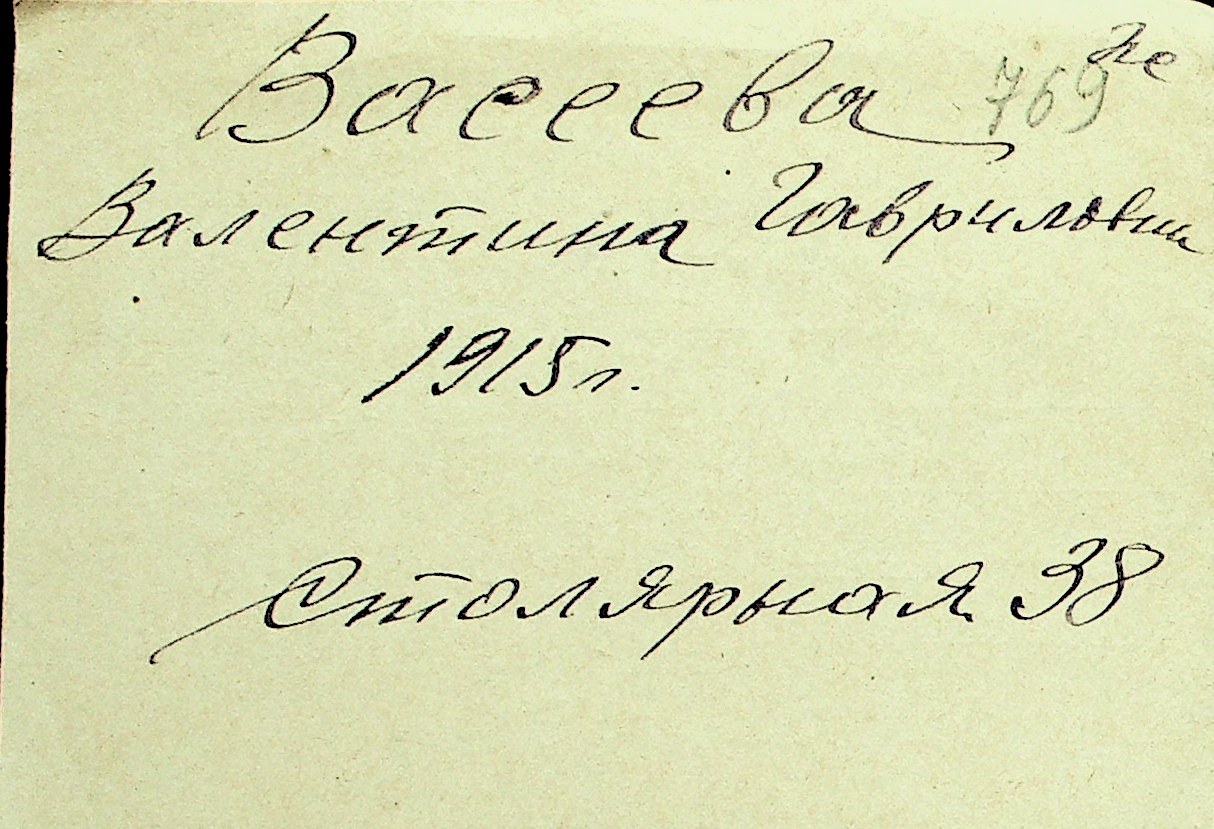 Васеева 769
Валентина Гавриловна
1915 г.
Столярная 38